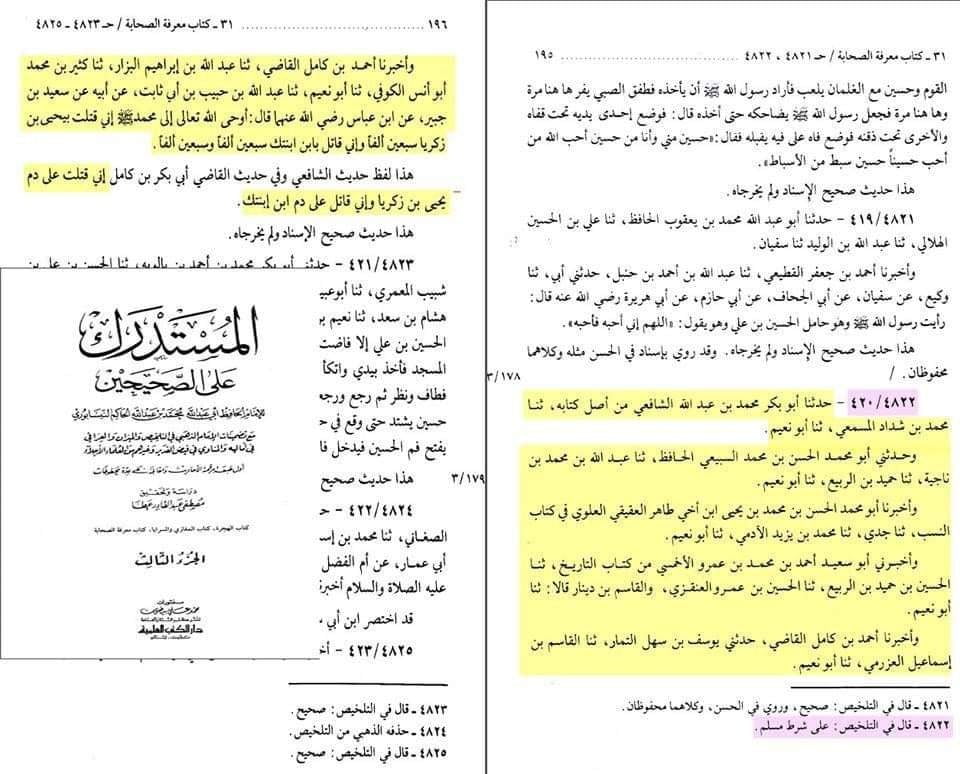 ٣١ - كتاب معرفة الصحابة / حـ ٤٨٢١ ، ٤٨٢٢ ........ ١٩٥
القوم وحسين مع الغلمان يلعب فأراد رسول الله ﷺ أن يأخذه فطفق الصبي يفر ها هنا مرة
وها هنا مرة فجعل رسول الله ﷺ يضاحكه حتى أخذه قال : فوضع إحدى يديه تحت قفاه
والأخرى تحت ذقنه فوضع فاه على فيه يقبله فقال : «حسين مني وأنا من حسين أحب الله من
أحب حسيناً حسين سبط من الأسباط» .
هذا حديث صحيح الإسناد ولم يخرجاه .
٤١٩/٤٨٢١ - حدثنا أبو عبد الله محمد بن يعقوب الحافظ ، ثنا علي بن الحسين
الهلالي ، ثنا عبد الله بن الوليد ثنا سفيان .
وأخبرنا أحمد بن جعفر القطيعي ، ثنا عبد الله بن أحمد بن حنبل ، حدثني أبي ، ثنا
وكيع ، عن سفيان ، عن أبي الجحاف ، عن أبي حازم ، عن أبي هريرة رضي الله عنه قال :
رأيت رسول الله ﷺ وهو حامل الحسين بن علي وهو يقول : «اللهم إني أحبه فأحبه» .
هذا حديث صحيح الإسناد ولم يخرجاه . وقد روي بإسناد في الحسن مثله وكلاهما
محفوظان . /
٣/١٧٨
٤٢٠/٤٨٢٢ - حدثنا أبو بكر محمد بن عبد الله الشافعي من أصل كتابه ، ثنا
محمد بن شداد المسمعي ، ثنا أبو نعيم .
وحدثني أبو محمد الحسن بن محمد السبيعي الحافظ ، ثنا عبد الله بن محمد بن
ناجية ، ثنا حميد بن الربيع ، ثنا أبو نعيم .
وأخبرنا أبو محمد الحسن بن محمد بن يحيى ابن أخي طاهر العقيقي العلوي في كتاب
النسب ، ثنا جدي ، ثنا محمد بن يزيد الأدمي ، ثنا أبو نعيم .
وأخبرني أبو سعيد أحمد بن محمد بن عمرو الأخمسي من كتاب التاريخ ، ثنا
الحسين بن حميد بن الربيع ، ثنا الحسين بن عمرو العنقزي ، والقاسم بن دينار قالا : ثنا
أبو نعيم .
وأخبرنا أحمد بن كامل القاضي ، حدثني يوسف بن سهل التمار ، ثنا القاسم بن
إسماعيل العزرمي ، ثنا أبو نعيم .
٤٨٢١ - قال في التلخيص : صحيح ، وروي في الحسن ، وكلاهما محفوظان .
٤٨٢٢ - قال في التلخيص : على شرط مسلم .
١٩٦ ........ ٣١ - كتاب معرفة الصحابة / حـ ٤٨٢٣ - ٤٨٢٥
وأخبرنا أحمد بن كامل القاضي ، ثنا عبد الله بن إبراهيم البزار ، ثنا كثير بن محمد
أبو أنس الكوفي ، ثنا أبو نعيم ، ثنا عبد الله بن حبيب بن أبي ثابت ، عن أبيه عن سعيد بن
جبير ، عن ابن عباس رضي الله عنهما قال : أوحى الله تعالى إلى محمد ﷺ إني قتلت بيحيى بن
زكريا سبعين ألفاً وإني قاتل بابن ابنتك سبعين ألفاً وسبعين ألفاً .
هذا لفظ حديث الشافعي وفي حديث القاضي أبي بكر بن كامل إني قتلت على دم
يحيى بن زكريا وإني قاتل على دم ابن إبنتك .
هذا حديث صحيح الإسناد ولم يخرجاه .
٤٢١/٤٨٢٣ - حدثني أبو بكر محمد بن أحمد بن بالويه ، ثنا الحسن بن علي بن
شبيب المعمري ، ثنا أبو عبيد
هشام بن سعد ، ثنا نعيم
الحسين بن علي إلا فاضت
المسجد فأخذ بيدي واتكأ
فطاف ونظر ثم رجع ورجع
حسين يشتد حتى وقع في
يفتح فم الحسين فيدخل
هذا حديث صحيح
٣/١٧٩
٤٢٢/٤٨٢٤ - حـ
الصغاني ، ثنا محمد بن
أبي عمار ، عن أم الفضل
عليه الصلاة والسلام
قد اختصر ابن أبي
٤٢٣/٤٨٢٥ -
٤٨٢٣ - قال في التلخيص : صحيح .
٤٨٢٤ - حذفه الذهبي من التلخيص .
٤٨٢٥ - قال في التلخيص : صحيح .
المستدرك
على الصحيحين
للإمام الحافظ أبي عبد الله محمد بن عبد الله الحاكم النيسابوري
مع تضمينات الإمام الذهبي في التلخيص والميزان والعراقي
في أماليه والمناوي في فيض القدير وغيرهم من العلماء الأجلاء
دراسة وتحقيق
مصطفى عبد القادر عطا
كتاب الهجرة، كتاب المغازي والسرايا، كتاب معرفة الصحابة
الجزء الثالث
منشورات
محمد علي بيضون
دار الكتب العلمية